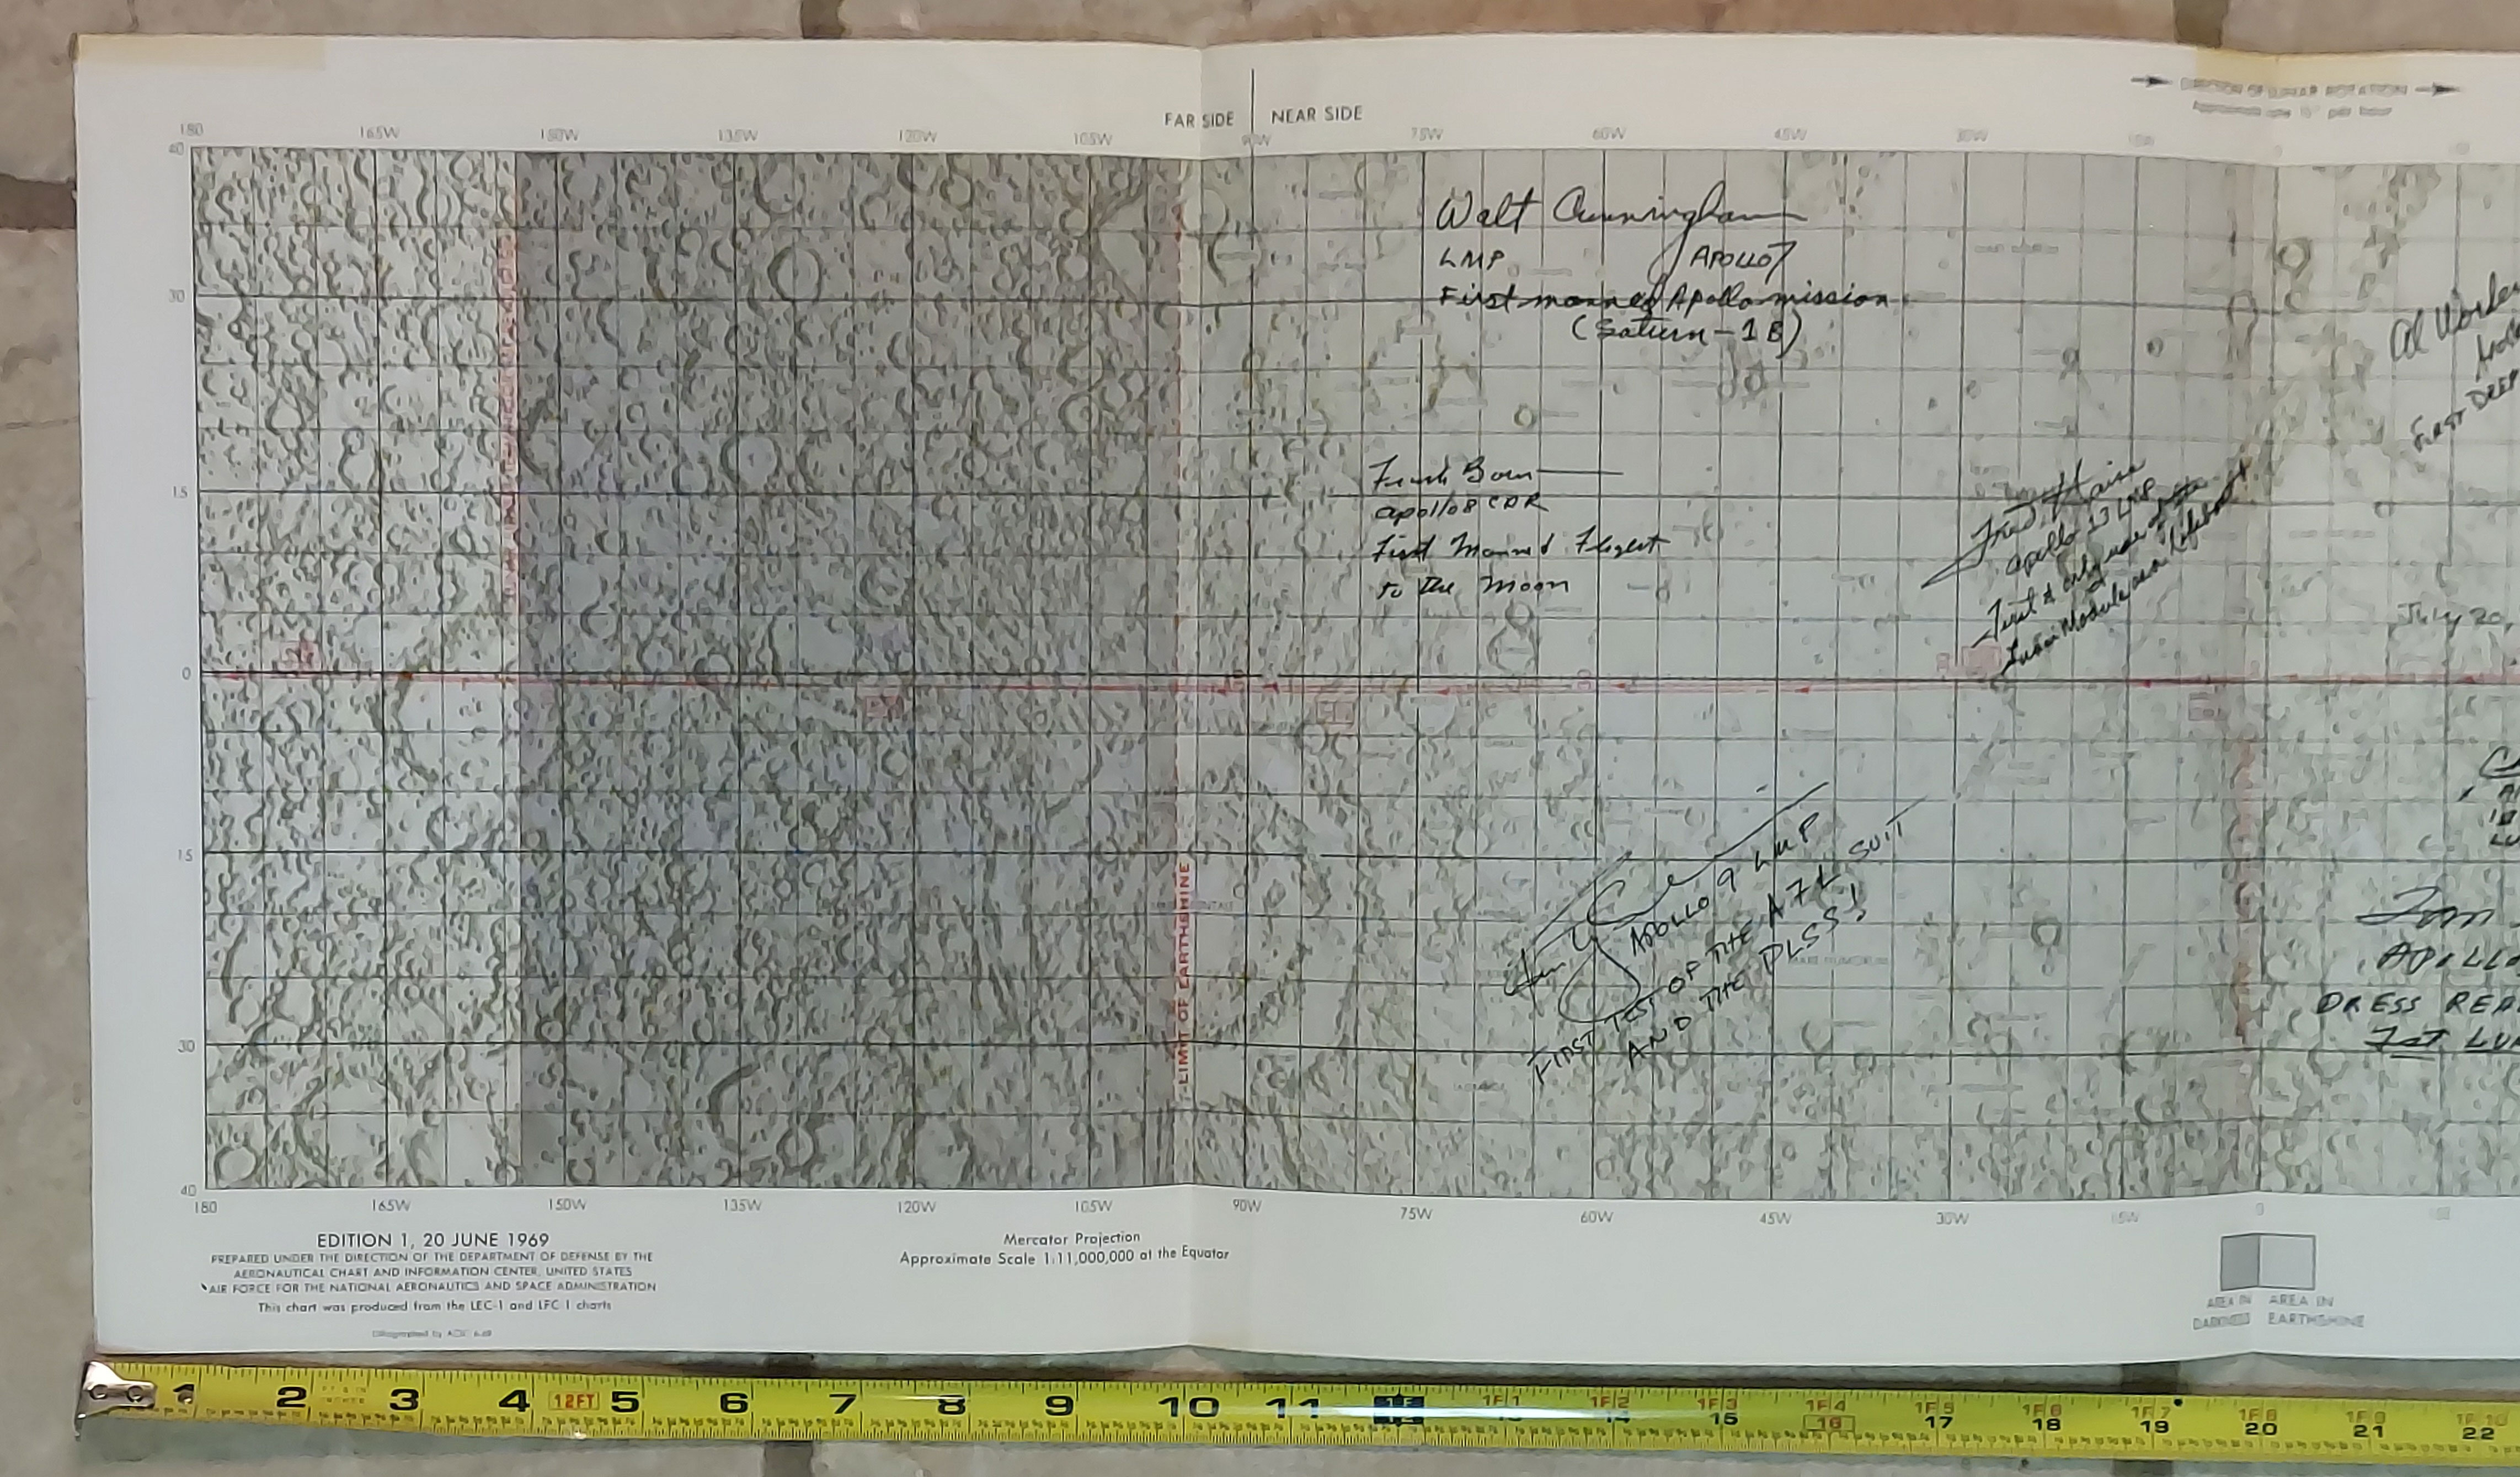 DIRECTION OF LUNAR ROTATION
FAR SIDE
NEAR SIDE
180 165W 150W 135W 120W 105W 90W 75W 60W 45W 30W 15W 0
40
30
15
0
15
30
40
Walt Cunningham
LMP APOLLO 7
First manned Apollo mission
(Saturn-1B)
Al Worden
FIRST DEEP
Frank Borman
Apollo 8 CDR
First Manned Flight
to the Moon
Fred Haise
Apollo 13 LMP
First & only use of
Lunar Module as a Lifeboat
July 20,
LIMIT OF EARTHSHINE
APOLLO 9 LMP
FIRST TEST OF THE A7L SUIT
AND THE PLSS!
Tom
APOLLO
DRESS REA
1st LU
180 165W 150W 135W 120W 105W 90W 75W 60W 45W 30W 15W 0
EDITION 1, 20 JUNE 1969
PREPARED UNDER THE DIRECTION OF THE DEPARTMENT OF DEFENSE BY THE
AERONAUTICAL CHART AND INFORMATION CENTER, UNITED STATES
AIR FORCE FOR THE NATIONAL AERONAUTICS AND SPACE ADMINISTRATION
This chart was produced from the LEC-1 and LFC-1 charts
Mercator Projection
Approximate Scale 1:11,000,000 at the Equator
AREA IN DARKNESS
AREA IN EARTHSHINE
1 2 3 4 12FT 5 6 7 8 9 10 11 1F 1F1 1F2 14 1F3 15 1F4 16 1F5 17 1F6 18 1F7 19 1F8 20 1F9 21 1F10 22